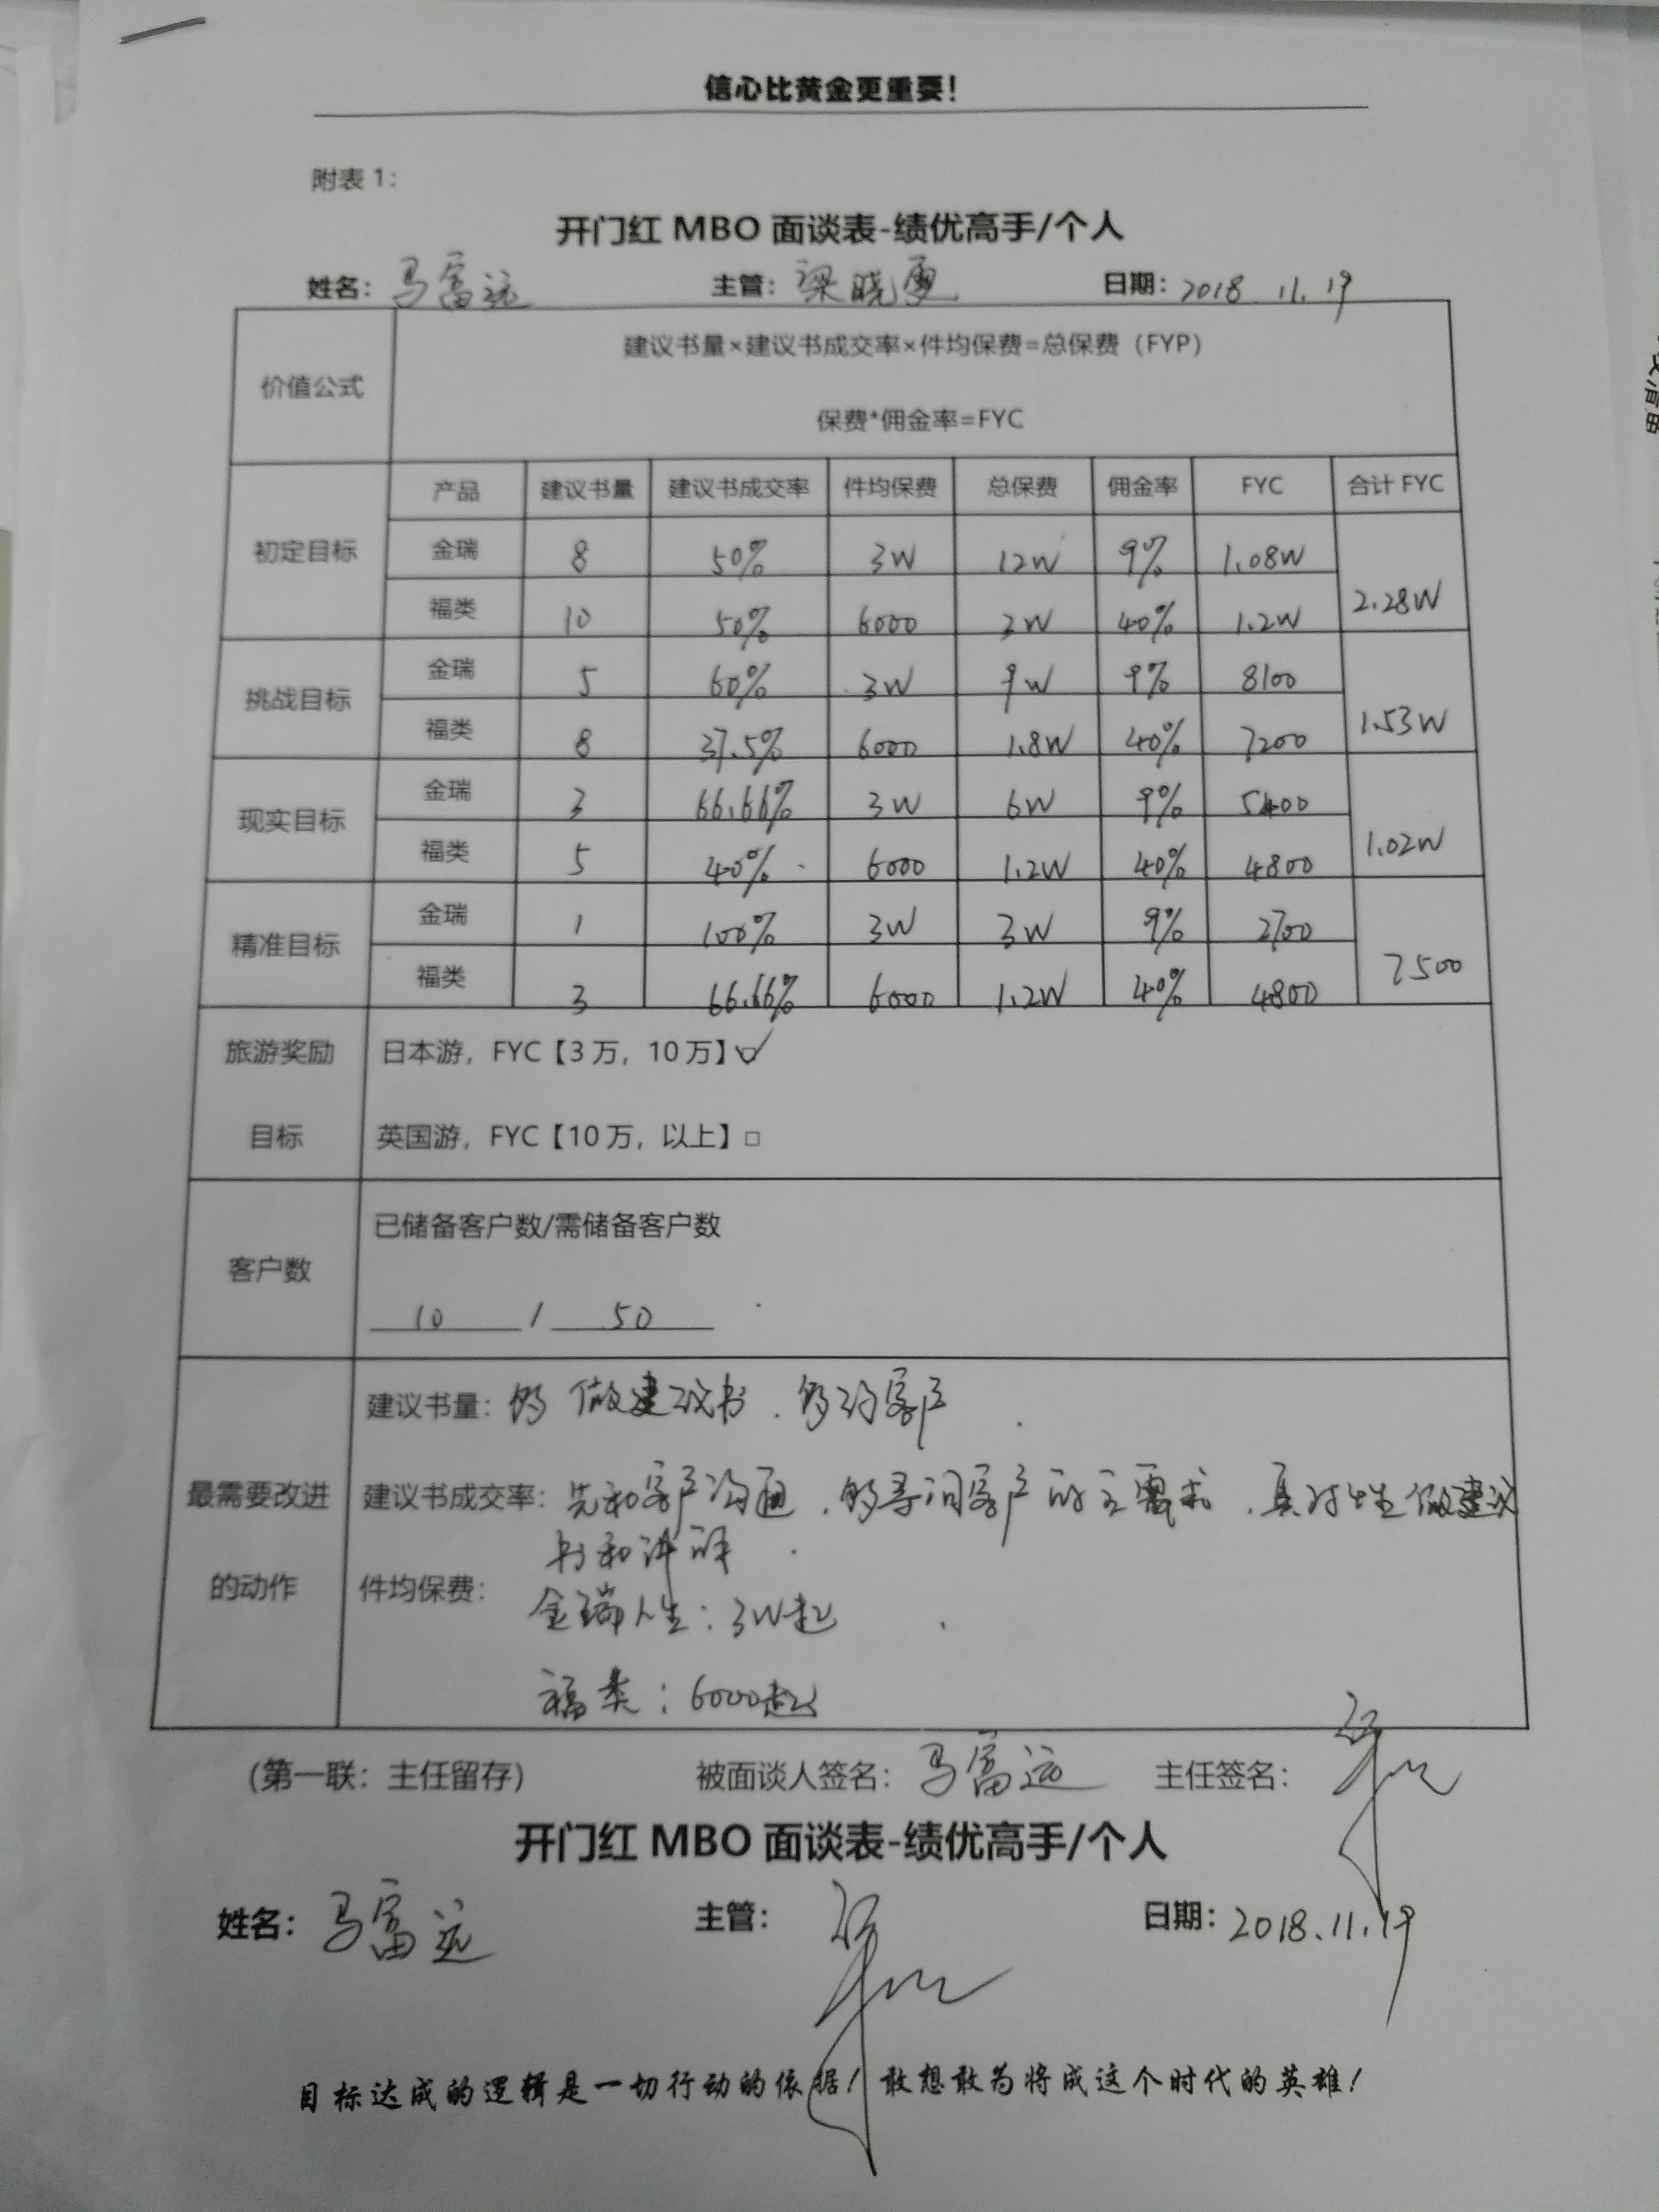 信心比黄金更重要！
附表1：
开门红 MBO 面谈表-绩优高手/个人
姓名：马富远 主管：梁晓更 日期：2018.11.19
价值公式
建议书量×建议书成交率×件均保费=总保费（FYP）
保费*佣金率=FYC
产品 建议书量 建议书成交率 件均保费 总保费 佣金率 FYC 合计 FYC
初定目标
金瑞 8 50% 3W 12W 9% 1.08W
福类 10 50% 6000 3W 40% 1.2W
2.28W
挑战目标
金瑞 5 60% 3W 9W 9% 8100
福类 8 37.5% 6000 1.8W 40% 7200
1.53W
现实目标
金瑞 3 66.66% 3W 6W 9% 5400
福类 5 40% 6000 1.2W 40% 4800
1.02W
精准目标
金瑞 1 100% 3W 3W 9% 2700
福类 3 66.66% 6000 1.2W 40% 4800
7500
旅游奖励
目标
日本游，FYC【3万，10万】☑
英国游，FYC【10万，以上】□
客户数
已储备客户数/需储备客户数
10 / 50
最需要改进
的动作
建议书量：的 做建议书．的约客户
建议书成交率：先和客户沟通．的寻问客户的主需求．真对性做建议
书和讲解
件均保费：
金瑞人生：3W起
福类：6000起
（第一联：主任留存） 被面谈人签名：马富远 主任签名：
开门红 MBO 面谈表-绩优高手/个人
姓名：马富远 主管： 日期：2018.11.19
目标达成的逻辑是一切行动的依据！敢想敢为将成这个时代的英雄！